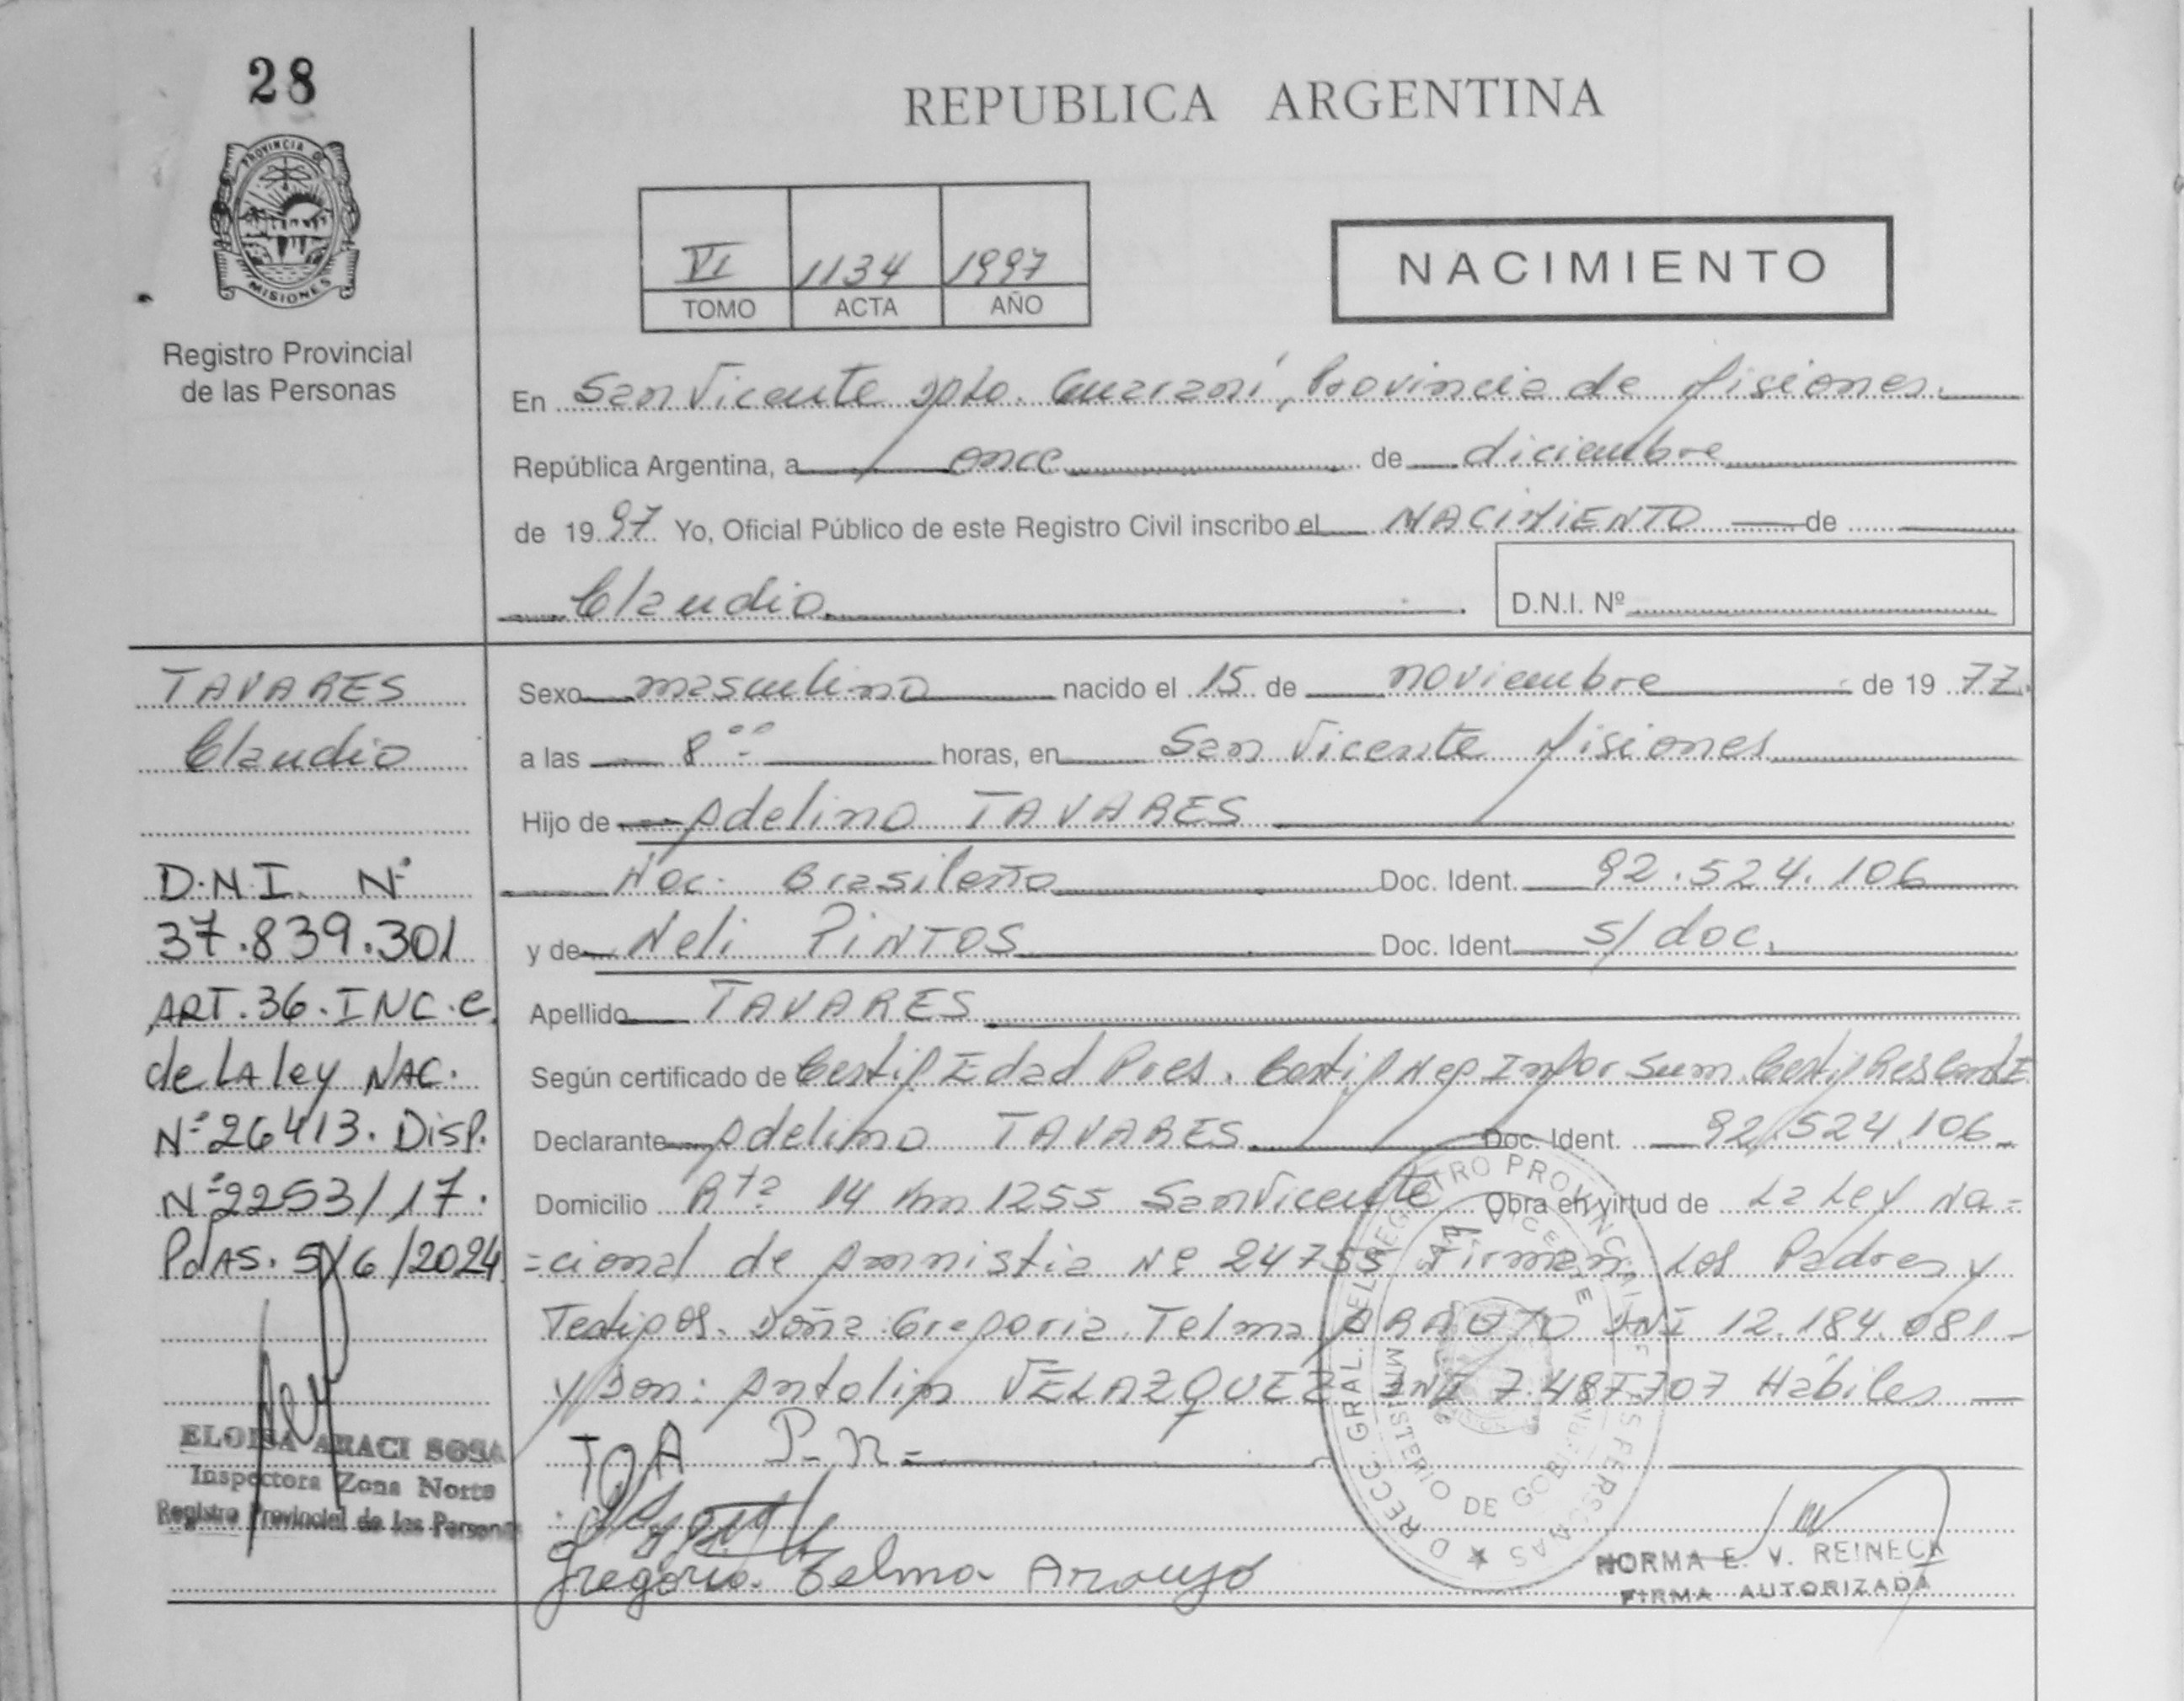 28
PROVINCIA DE
MISIONES
Registro Provincial
de las Personas
REPUBLICA ARGENTINA
VI 1134 1997
TOMO ACTA AÑO
NACIMIENTO
En San Vicente Dpto. Guaraní, Provincia de Misiones.
República Argentina, a once de diciembre
de 1997 Yo, Oficial Público de este Registro Civil inscribo el NACIMIENTO de
Claudio
D.N.I. Nº
TAVARES
Claudio
D.N.I. Nº
37.839.301
ART. 36. INC. C
de LA ley NAC.
Nº 26413. DISP.
Nº 2253/17.
PdAS. 5/6/2024
ELOISA ARACI SOSA
Inspectora Zona Norte
Registro Provincial de las Personas
Sexo masculino nacido el 15 de noviembre de 1977.
a las 8°° horas, en San Vicente Misiones
Hijo de Adelino TAVARES
Nac. Brasileña Doc. Ident. 92.524.106
y de Neli PINTOS Doc. Ident. s/doc.
Apellido TAVARES
Según certificado de Certif Edad Pres. Certif Neg Infor Sum. Certif Res
Declarante Adelino TAVARES Doc. Ident. 92.524.106
Domicilio Rta 14 Km 1255 San Vicente Obra en virtud de La Ley Na=
=cional de Amnistia Nº 24755 Firman Los Padres y
Testigos. Doña Gregoria Telma ARAUJO DNI 12.184.081
y Don: Antolin VELAZQUEZ DNI 7.487.707 Hábiles
Gregoria Telma Araujo
DIRECC. GRAL. DEL REGISTRO PROVINCIAL DE LAS PERSONAS
MINISTERIO DE GOBIERNO
SAN VICENTE
NORMA E. V. REINECK
FIRMA AUTORIZADA